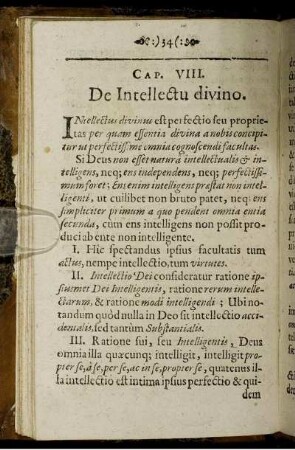 :) 34 (:
CAP. VIII.
De Intellectu divino.
INtellectus divinus est perfectio seu proprie-
tas per quam essentia divina a nobis concipi-
tur ut perfectissime omnia cognoscendi facultas.
Si Deus non esset natura intellectualis & in-
telligens, neq; ens independens, neq; perfectissi-
mum foret: Ens enim intelligens præstat non intel-
ligenti, ut cuilibet non bruto patet, neq; ens
simpliciter primum a quo pendent omnia entia
secunda, cum ens intelligens non possit pro-
duci ab ente non intelligente.
I. Hic spectandus ipsius facultatis tum
actus, nempe intellectio, tum virtutes.
II. Intellectio Dei consideratur ratione ip-
siusmet Dei Intelligentis, ratione rerum intelle-
ctarum, & ratione modi intelligendi; Ubi no-
tandum quòd nulla in Deo sit intellectio acci-
dentalis, sed tantùm Substantialis.
III. Ratione sui, seu Intelligentis, Deus
omnia illa quæcunq; intelligit, intelligit pro-
pter se, à se, per se, ac in se, propter se, quatenus il-
la intellectio est intima ipsius perfectio & qui-
dem